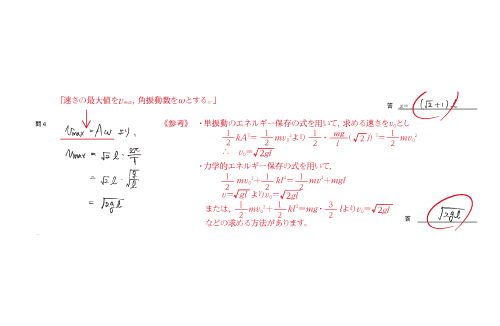 「速さの最大値をvmax, 角振動数をωとする。」
答 x= (√2+1)l
問4
vmax = Aω より,
vmax = √2 l · 2π/T
= √2 l · √(g/l)
= √(2gl)
《参考》 ・単振動のエネルギー保存の式を用いて, 求める速さをv₀とし
1/2 kA² = 1/2 mv₀² より 1/2 · mg/l (√2 l)² = 1/2 mv₀²
∴ v₀=√(2gl)
・力学的エネルギー保存の式を用いて,
1/2 mv₀² + 1/2 kl² = 1/2 mv² + mgl
v=√(gl) よりv₀=√(2gl)
または, 1/2 mv₀² + 1/2 kl² = mg · 3/2 l よりv₀=√(2gl)
などの求める方法があります。
答 √(2gl)